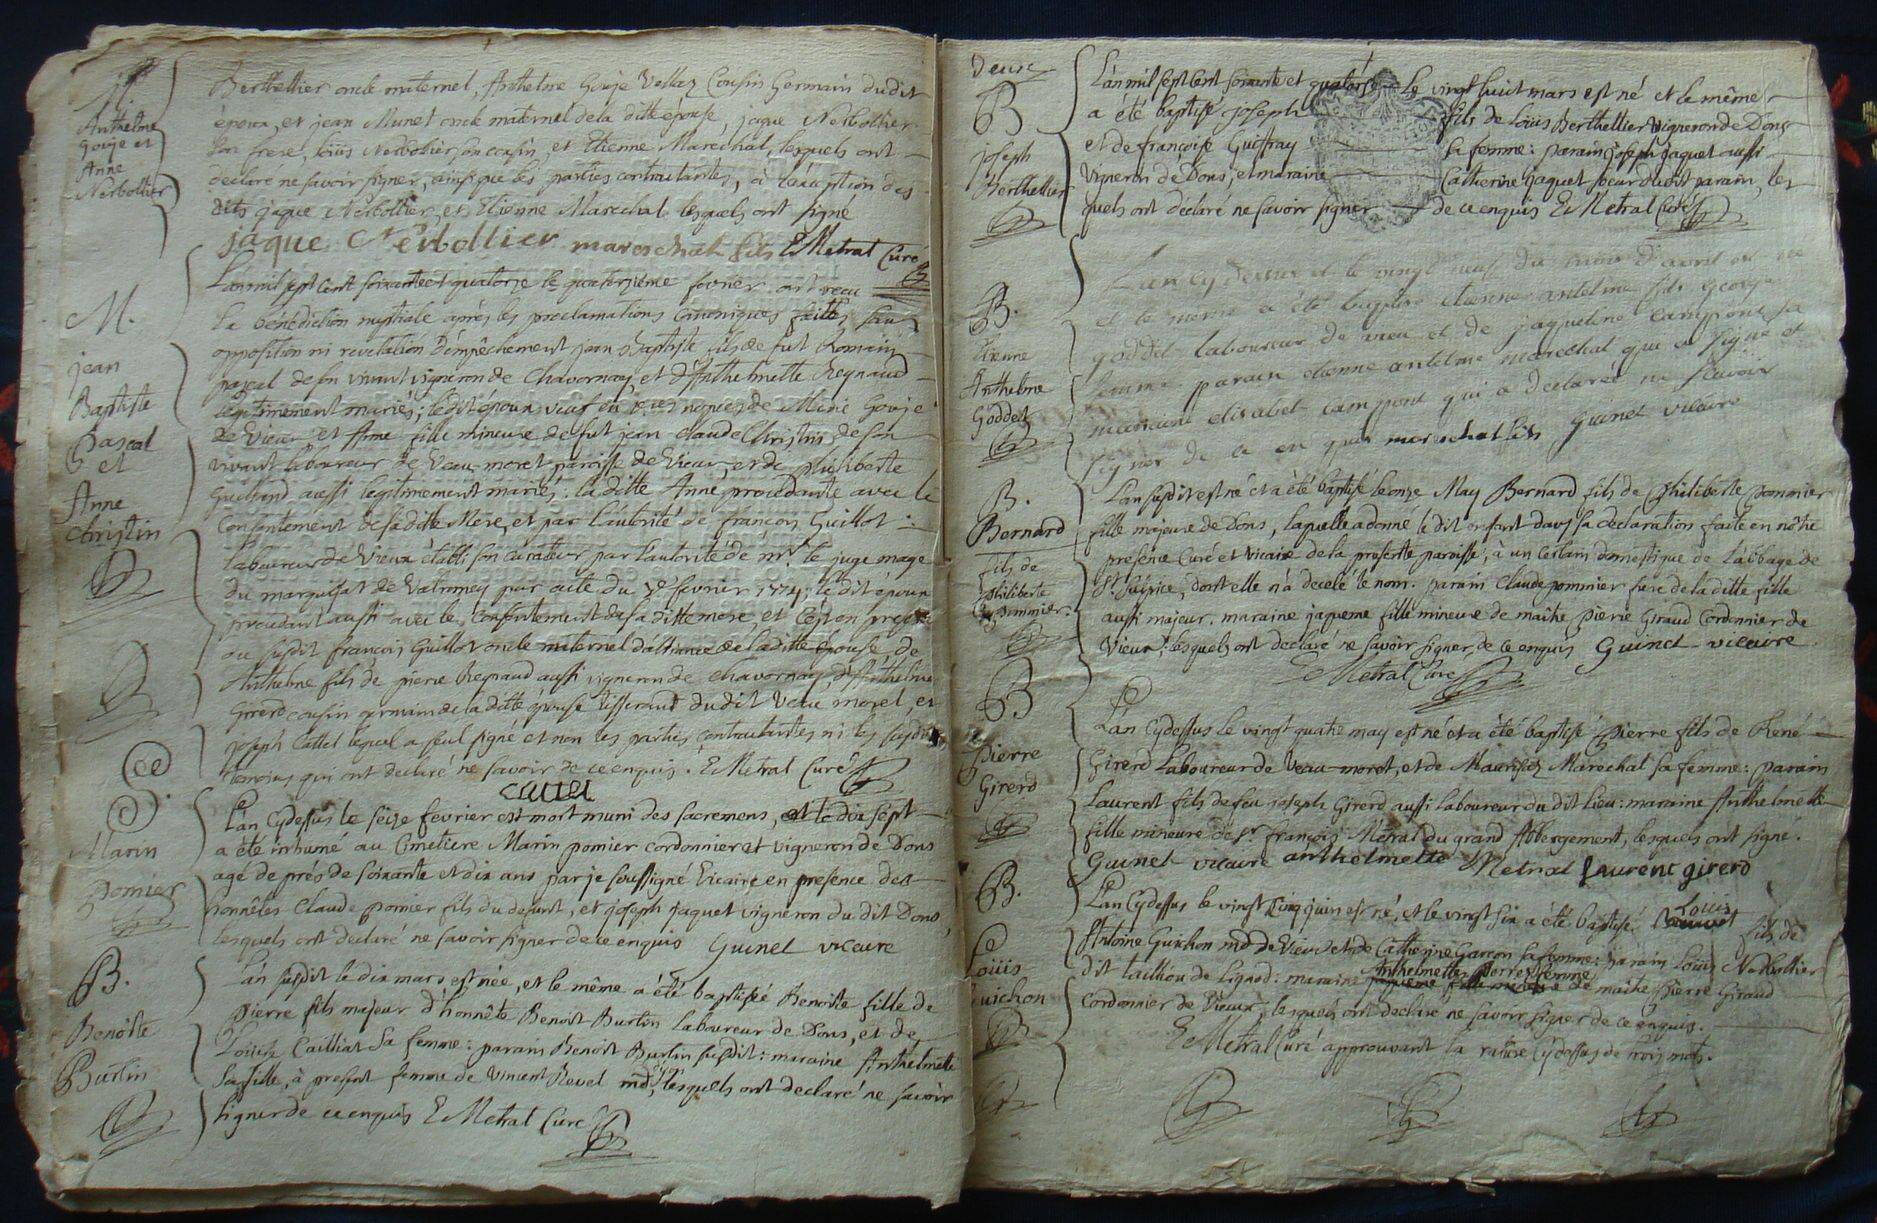 Anthelme
Gouje et
Anne
Nerbollier
Berthellier oncle maternel, Anthelme Gouje Vellaz Cousin Germain dudit
époux, et jean Munet oncle maternel de la ditte épouse, jaque Nerbollier
son frere, loüis Nerbolier son cousin, et Etienne Marechal, lesquels ont
declaré ne savoir signer, ainsi que les parties contractantes, à l'exception des
dits jaque Nerbollier et Etienne Marechal lesquels ont signé
jaque Nerbollier mareschal fils E Metral Curé
M.
jean
Baptiste
Pascal
et
Anne
Christin
L'an mil sept cent soixante et quatorze le quatorzième fevrier ont reçu
la bénédiction nuptiale après les proclamations Canoniques faittes, sans
opposition ni revelation d'empêchement jean Baptiste fils de fut Romain
pascal de son vivant vigneron de Chavornay, et d'Anthelmette Reynaud
légitimement mariés; le dit époux veuf en 1eres nopces de Marie Gouje
de Vieux, et Anne fille mineure de fut jean Claude Christin de son
vivant laboureur de Veau-moret paroisse de Vieux, et de philiberte
Guilland aussi legitimement mariés: la ditte Anne, procedante avec le
Consentement de sa ditte Mere, et par l'autorité de françois Guillot
laboureur de Vieux établi son curateur par l'autorité de mr. le juge mage
du marquisat de Valromey par acte du fevrier 1774; le dit époux
procedant aussi avec le Consentement de sa ditte mere, et C'est en presce
du susdit françois Guillot oncle maternel d'alliance de la ditte épouse, de
Anthelme fils de pierre Reynaud aussi vigneron de Chavornay, d'Anthelme
Girerd cousin germain de la ditte épouse tisserand du dit Veau moret, et
joseph Cattet lequel a seul signé et non les parties contractantes ni les susdits
temoins qui ont declaré ne savoir de ce enquis. E Metral Curé
cattet
S.
Marin
pomier
L'an cydessus le seize fevrier est mort muni des sacremens, et le dix sept
a été inhumé au Cimetiere Marin pomier cordonnier et vigneron de Dons
agé de près de soixante et dix ans par je soussigné Vicaire en presence des
honnêtes Claude pomier fils du defunt, et joseph jaquet vigneron du dit Dons,
lesquels ont declaré ne savoir signer de ce enquis Guinet viceure
B.
Benoîte
Burlin
L'an susdit le dix mars est née, et le même a été baptisée Benoite fille de
pierre fils majeur d'honnête Benoit Burlin laboureur de Dons, et de
Loüise Cailliat sa femme: parain Benoit Burlin susdit: maraine Anthelmette
sa fille, à present femme de Vincent Revel md, lesquels ont declaré ne savoir
signer de ce enquis E Metral Curé
Deuse
B
joseph
Berthellier
L'an mil sept cent soixante et quatorze le vingt huit mars est né et le même
a été baptisé joseph fils de loüis Berthellier Vigneron de Dons
et de françoise Guiffray sa femme: parain joseph jaquet aussi
Vigneron de Dons, et maraine Catherine jaquet soeur du dit parain, les
quels ont déclaré ne savoir signer de ce enquis E Metral Curé
B.
Etienne
Anthelme
Goddet
L'an cy dessus et le vingt neuf du mois d'avril est né
et le meme a été baptisé etienne antelme fils george
goddet laboureur de vieu et de jaqueline campont sa
femme parain etienne antelme marechal qui a signé et
maraine elisabet campont qui a declaréé ne scavoir
signer de ce en quis mareschal fils Guinet viceure
B.
Bernard
fils de
philiberte
pommier.
L'an susdit est né et a été baptisé le onze May Bernard fils de Philiberte pommier
fille majeure de Dons, laquelle a donné le dit enfant dans sa déclaration faite en nôtre
presence Curé et vicaire de la presente paroisse, à un certain domestique de l'abbaye de
St. Sulpice, dont elle n'a decelé le nom. parain Claude pommier frere de la ditte fille
aussi majeur. maraine jaqueme fille mineure de maître pierre Giraud Cordonnier de
Vieux; lesquels ont declaré ne savoir signer, de ce enquis Guinet viceure
E Metral Cure
B
pierre
Girerd
L'an Cydessus le vingt quatre may est né et a été baptisé pierre fils de René
Girerd Laboureur de Veau-moret, et de Marechal sa femme: parain
Laurent fils de feu joseph Girerd aussi laboureur du dit lieu: maraine Anthelmette
fille mineure de Sr. françois Metral du grand Abbergement, lesquels ont signé.
Guinet viceure anthelmette Metral laurent girerd
B.
Loüis
Guichon
L'an Cydessus le vingt Cinq juin est né, et le vingt six a été baptisé Louis fils de
Antoine Guichon md de Vieux et de Catherine Garçon sa femme: parain Loüis Nerbollier
dit tailliou de Lignod: maraine Anthelmette femme de maître pierre Giraud
Cordonnier de Vieux, lesquels ont declaré ne savoir signer de ce enquis.
E Metral Curé approuvant la rature Cydessus de trois mots.